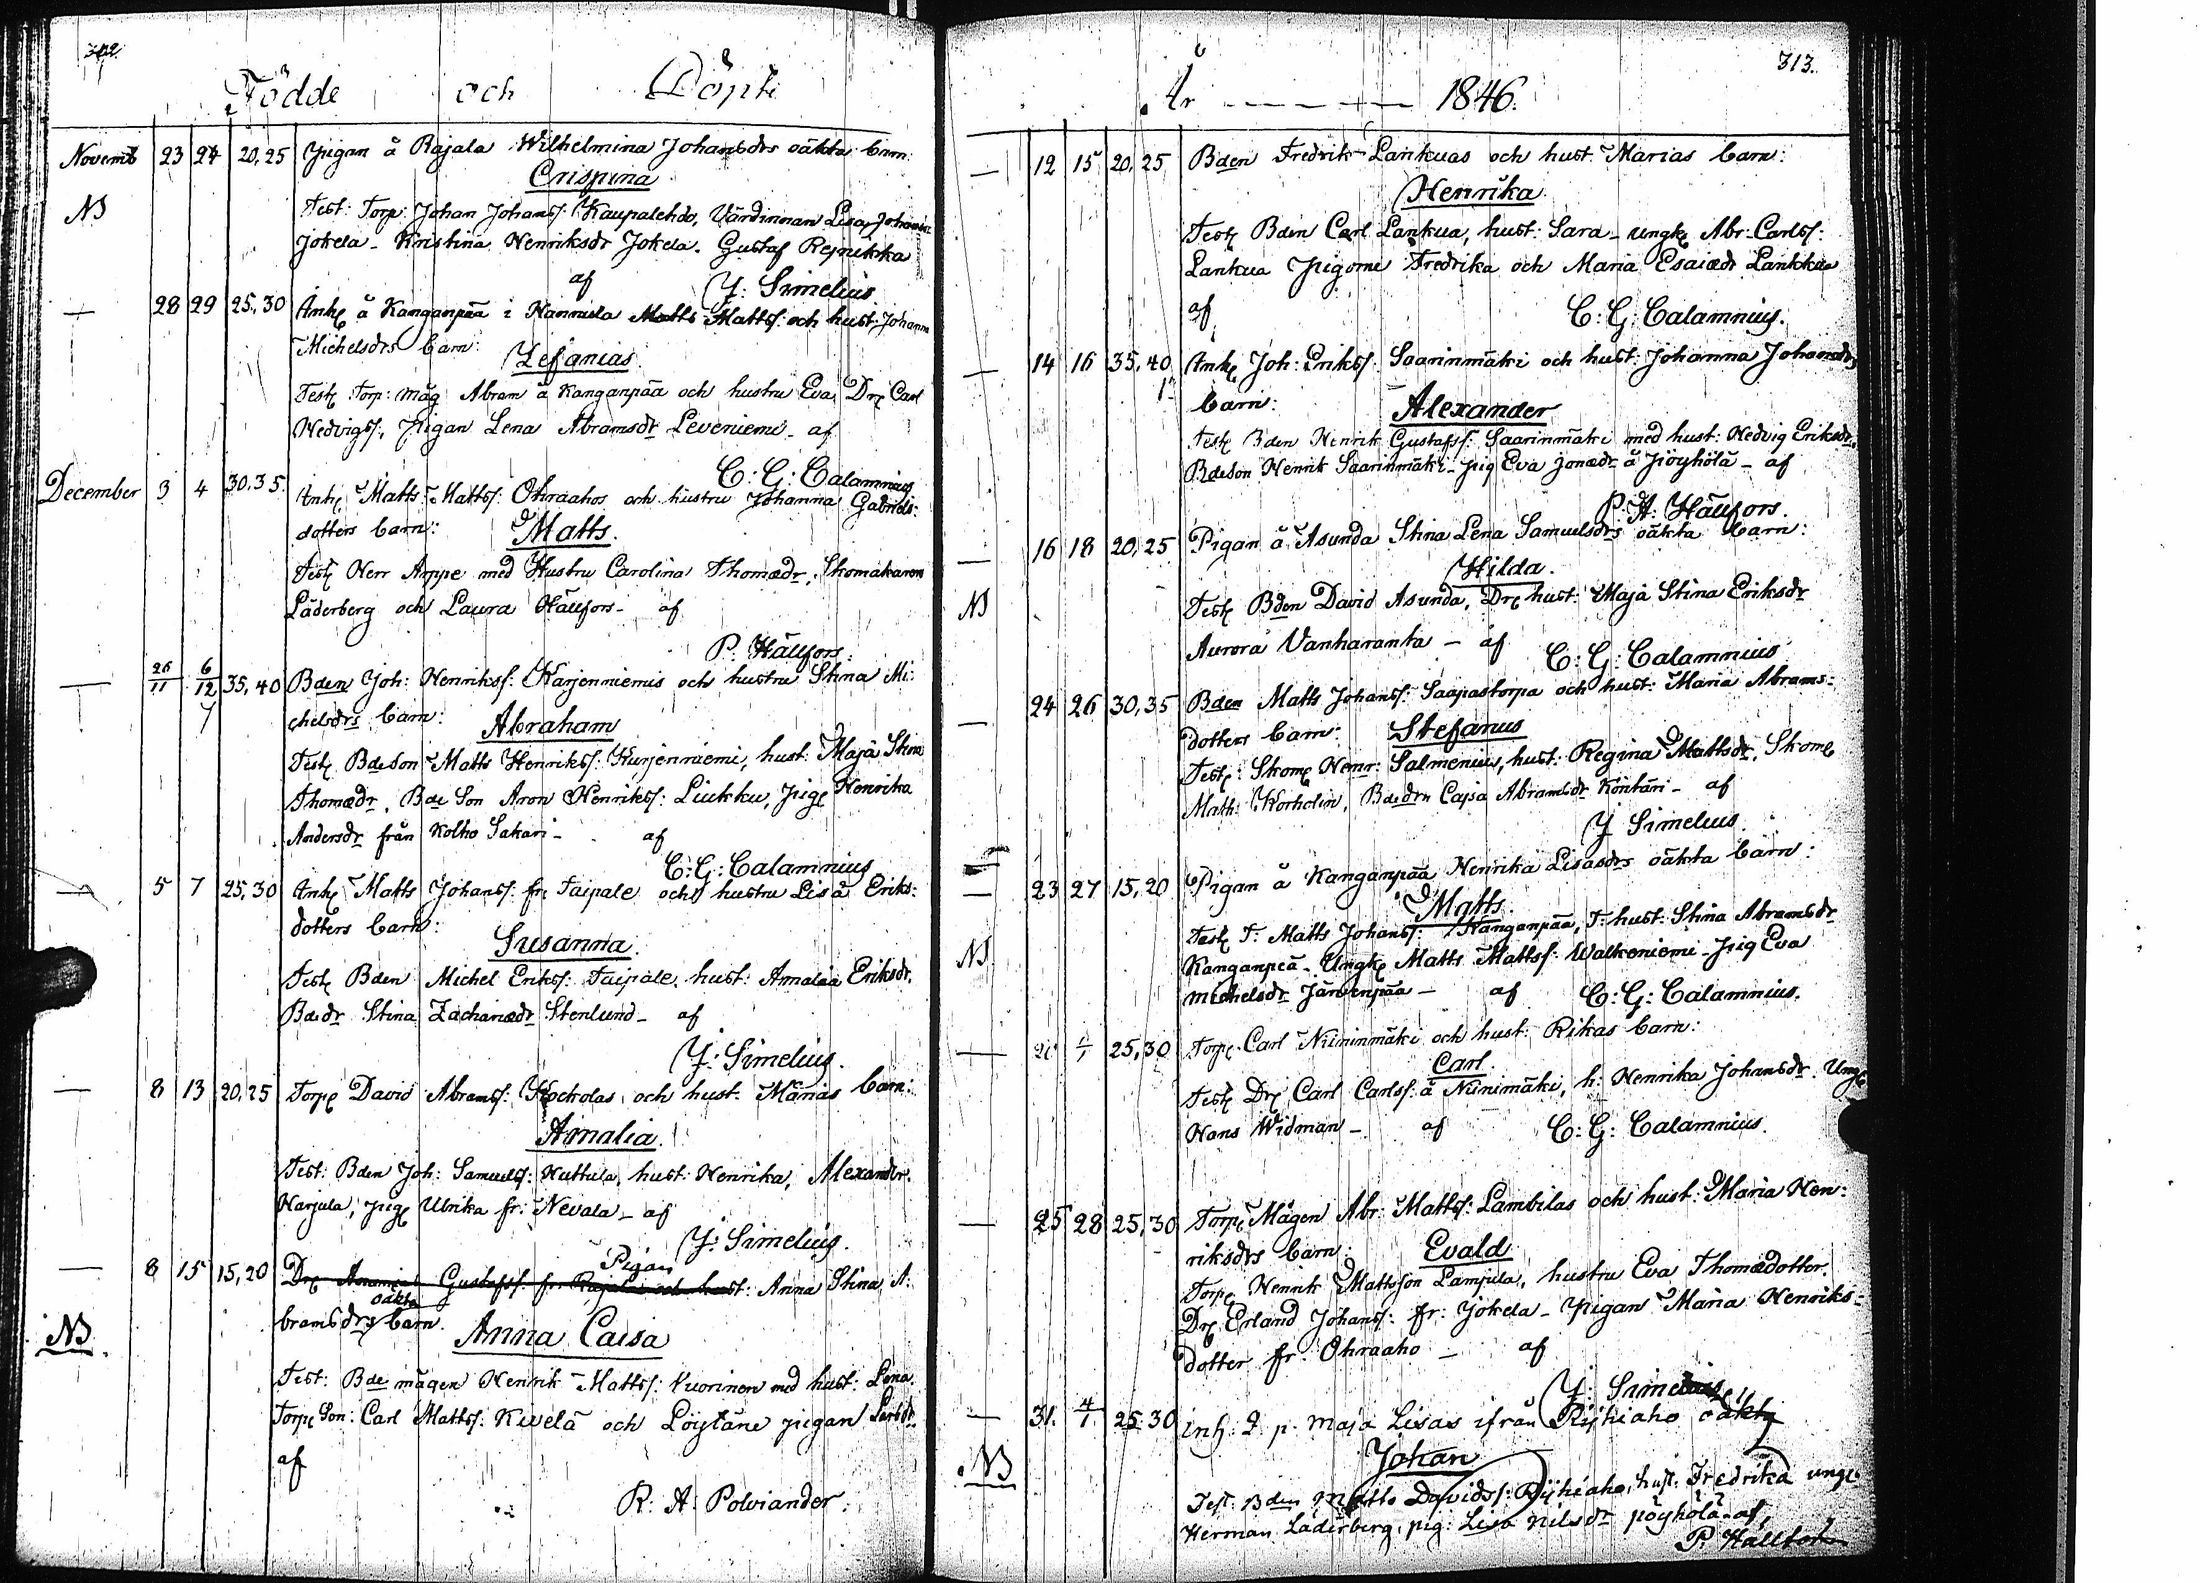 312.
Födde och Döpte
Novemb 23 24 20,25 Pigan å Rajala Wilhelmina Johansdrs oäkta barn:
Crispina
NB Test: Torp: Johan Johanss: Kaupalehdo, Värdinnan Lisa Johansdr
Jokela - Kristina Henriksdr Jokela. Gustaf Rejnikka
af J: Simelius
— 28 29 25,30 Inh: å Kanganpää i Hannula Matts Mattss: och hust: Johanna
Michelsdrs barn: Zefanias
Test: Torp: måg Abram å Kanganpää och hustru Eva, Dr: Carl
Hedvigss:, Pigan Lena Abramsdr Leveniemi - af
C: G: Calamnius
December 3 4 30.35. Inh: Matts Mattss: Ohraahos och hustru Johanna Gabriels:
dotters barn: Matts.
Test: Herr Appe med Hustru Carolina Thomædr, Skomakaren
Läderberg och Laura Hällfors - af
P: Hällfors.
— 26/11 6/12 35,40 Bden Joh: Henrikss: Karjenniemis och hustru Stina Mi:
chelsdrs barn: Abraham
Test: Bdeson Matts Henrikss: Kurjenniemi, hust: Maja Stina
Thomædr, Bde Son Aron Henrikss: Liukku, pig: Henrika
Andersdr från Kolho Sakari - af
C: G: Calamnius
— 5 7 25,30 Inh: Matts Johanss: fr: Taipale och hustru Lisa Eriks:
dotters barn: Susanna.
Test: Bden Michel Erikss: Taipale, hust: Amalia Eriksdr,
Bdedr Stina Zachariædr Stenlund - af
J: Simelius.
— 8 13 20,25 Torp: David Abramss: Kockolas och hust: Marias barn:
Amalia.
Test: Bden Joh: Samuelss: Huttula, hust: Henrika, Alexander
Harjula, pig: Ulrika fr: Nevala - af
J: Simelius.
— 8 15 15,20 Dr: Gustafss: fr: Rajala och hust: Pigan Anna Stina A:
bramsdrs oäkta barn.
NB. Anna Caisa
Test: Bde mågen Henrik Mattss: Vuorinen med hust: Lena.
Torp: Son: Carl Mattss: Kivelä och Löytäne pigan
af
R: A: Polviander.
313.
År — — — — 1846.
— 12 15 20,25 Bden Fredrik Lankuas och hust: Marias barn:
Henrika
Test: Bden Carl Lankua, hust: Sara - ungk: Abr: Carlss:
Lankua Pigorne Fredrika och Maria Esaiædr Lankka
af C: G: Calamnius.
— 14 16 35,40 Inh: Joh: Erikss: Saarinmäki och hust: Johanna Johansdrs
barn: Alexander
Test: Bden Henrik Gustafss: Saarinmäki med hust: Hedvig Eriksdr,
Bdeson Henrik Saarinmäki - pig Eva Jonædr å Pöyhölä - af
P. A: Hällfors.
— 16 18 20,25 Pigan å Asunda Stina Lena Samuelsdrs oäkta barn:
Hilda.
NB Test: Bden David Asunda, Dr: hust: Maja Stina Eriksdr
Aurora Vanharanta - af C: G: Calamnius
— 24 26 30,35 Bden Matts Johanss: Saapastorpa och hust: Maria Abrams:
dotters barn: Stefanus
Test: Skom: Henr: Salmenius, hust: Regina Mattsdr, Skom:
Math: Korholin, Bdedrn Cajsa Abramsdr Köntäri - af
J Simelius.
— 23 27 15,20 Pigan å Kanganpää Henrika Lisasdrs oäkta barn:
Matts.
NB. Test: T: Matts Johanss: Kanganpää, T: hust: Stina Abramsdr
Kanganpää - Ungk: Matts Mattss: Walkeniemi - pig Eva
Michelsdr Järvenpää - af C: G: Calamnius.
— 25,30 Torp: Carl Niininmäki och hust: Rikas barn:
Carl.
Test: Dr: Carl Carlss: å Niinimäki, h: Henrika Johansdr. Ung:
Hans Widman - af C: G: Calamnius.
— 25 28 25,30 Torp: Mågen Abr: Mattss: Lambilas och hust: Maria Hen:
riksdrs barn: Evald
Torp: Henrik Mattsson Lampila, hustru Eva Thomædotter.
Dr: Erland Johanss: fr: Jokela - Pigan Maria Henriks-
dotter fr: Ohraaho - af
J: Simelius
— 31. 4/1 25.30 inh: D. p. Maja Lisas ifrån Ryhiaho oäkta
NB Johan
Test: Bden Matts Davidss: Ryhiaho, hust: Fredrika ungk:
Herman Läderberg, pig: Lisa Nilsdr pöyhölä - af,
P. Hällfors